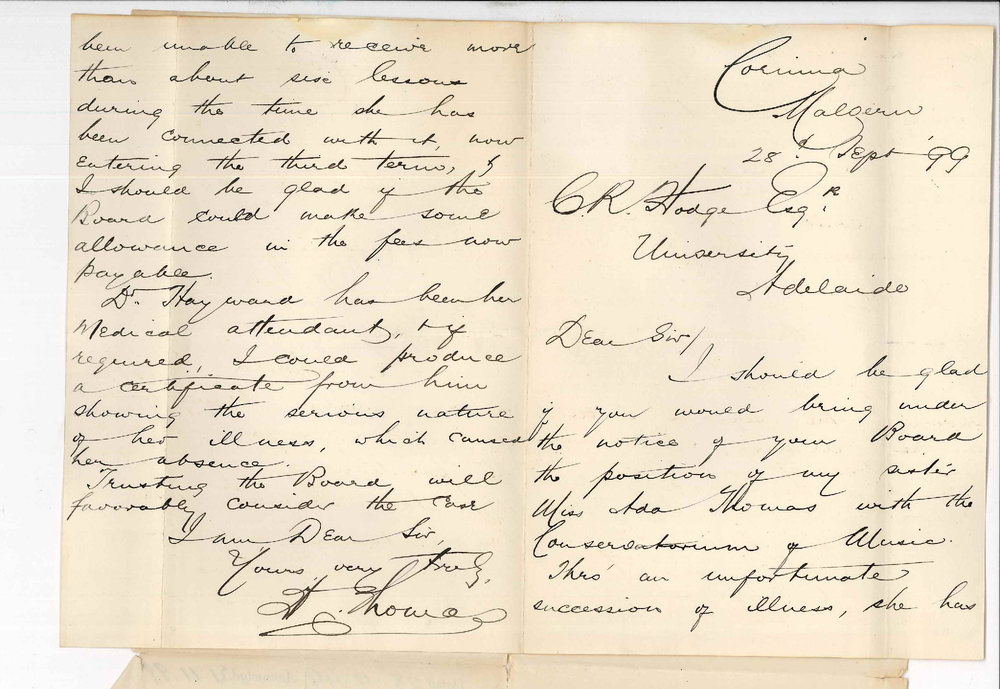 Corinna
Malvern
28th Sept '99
C.R. Hodge Esqr.
University
Adelaide
Dear Sir/
I should be glad
if you would bring under
the notice of your Board
the position of my sister
Miss Ada Thomas with the
Conservatorium of Music.
Thro' an unfortunate
succession of illness, she has
been unable to receive more
than about six lessons
during the time she has
been connected with it, now
entering the third term, &
I should be glad if the
Board could make some
allowance in the fees now
payable.
Dr. Hayward has been her
Medical attendant, & if
required, I could produce
a certificate from him
showing the serious nature
of her illness, which caused
her absence.
Trusting the Board will
favorably consider the case
I am Dear Sir,
Yours very truly,
Thomas